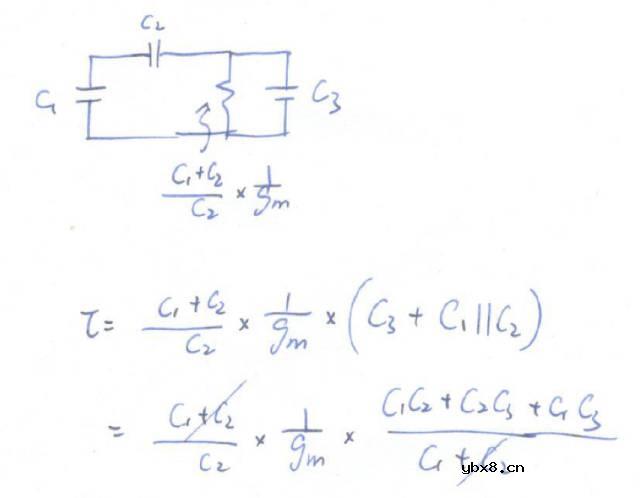 C₂
C₁ C₃
(C₁+C₂)/C₂ × 1/gm
τ = (C₁+C₂)/C₂ × 1/gm × (C₃ + C₁||C₂)
= (C₁+C₂)/C₂ × 1/gm × (C₁C₂+C₂C₃+C₁C₃)/(C₁+C₂)
ybx8.cn